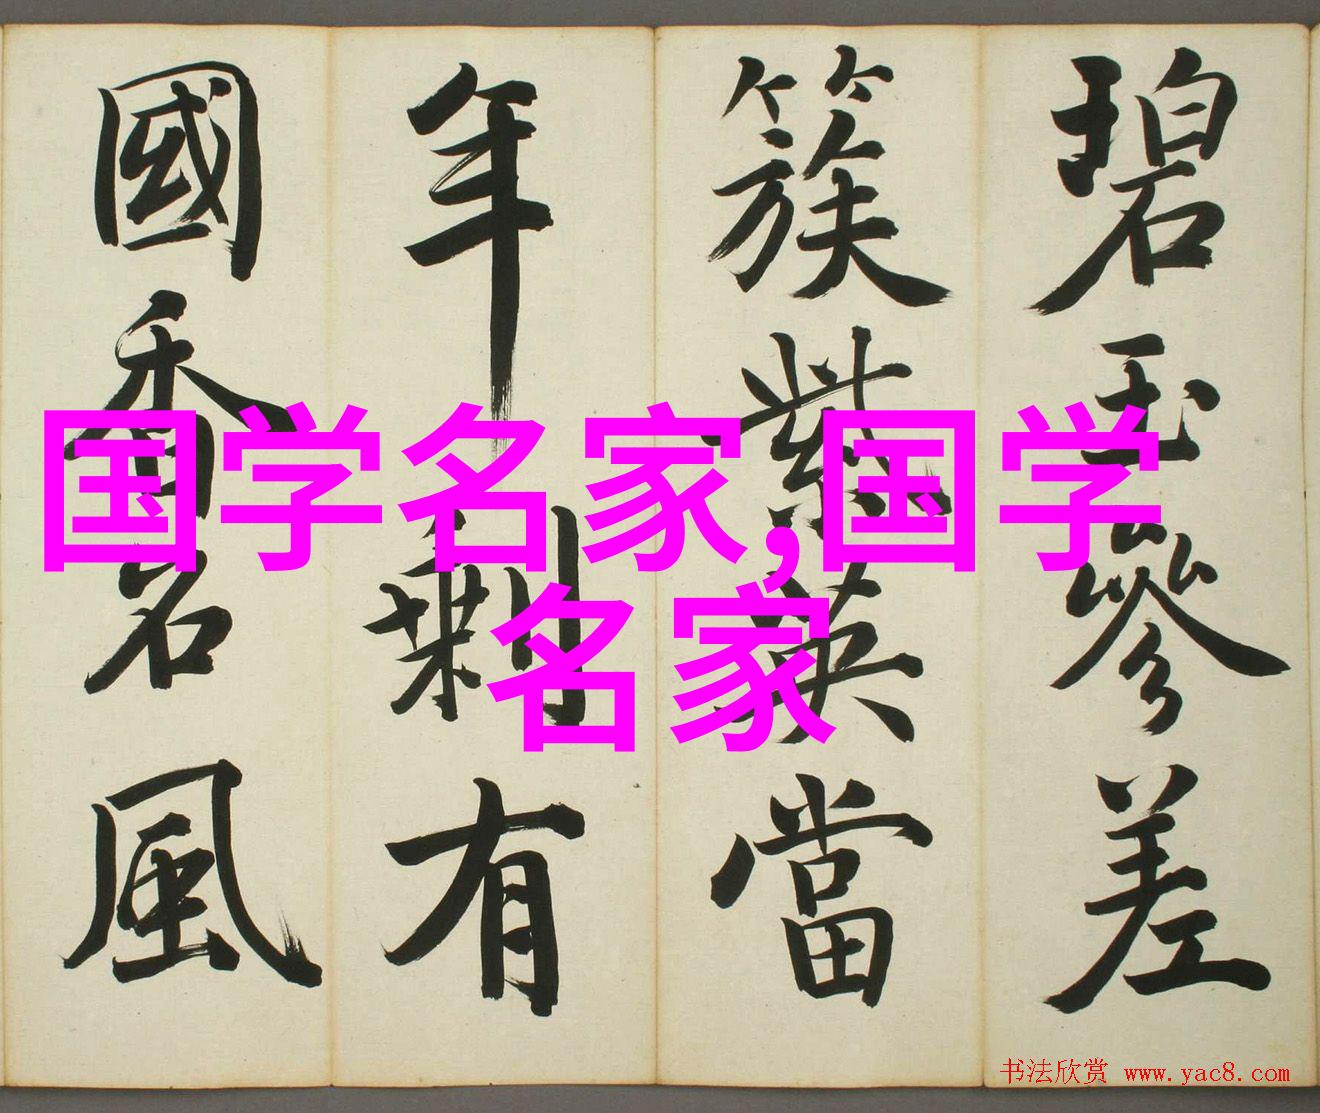 碧玉參差
簇紫英當
年剩有
國香名風
国学名家,国学
名家
书法欣赏 www.yac8.com